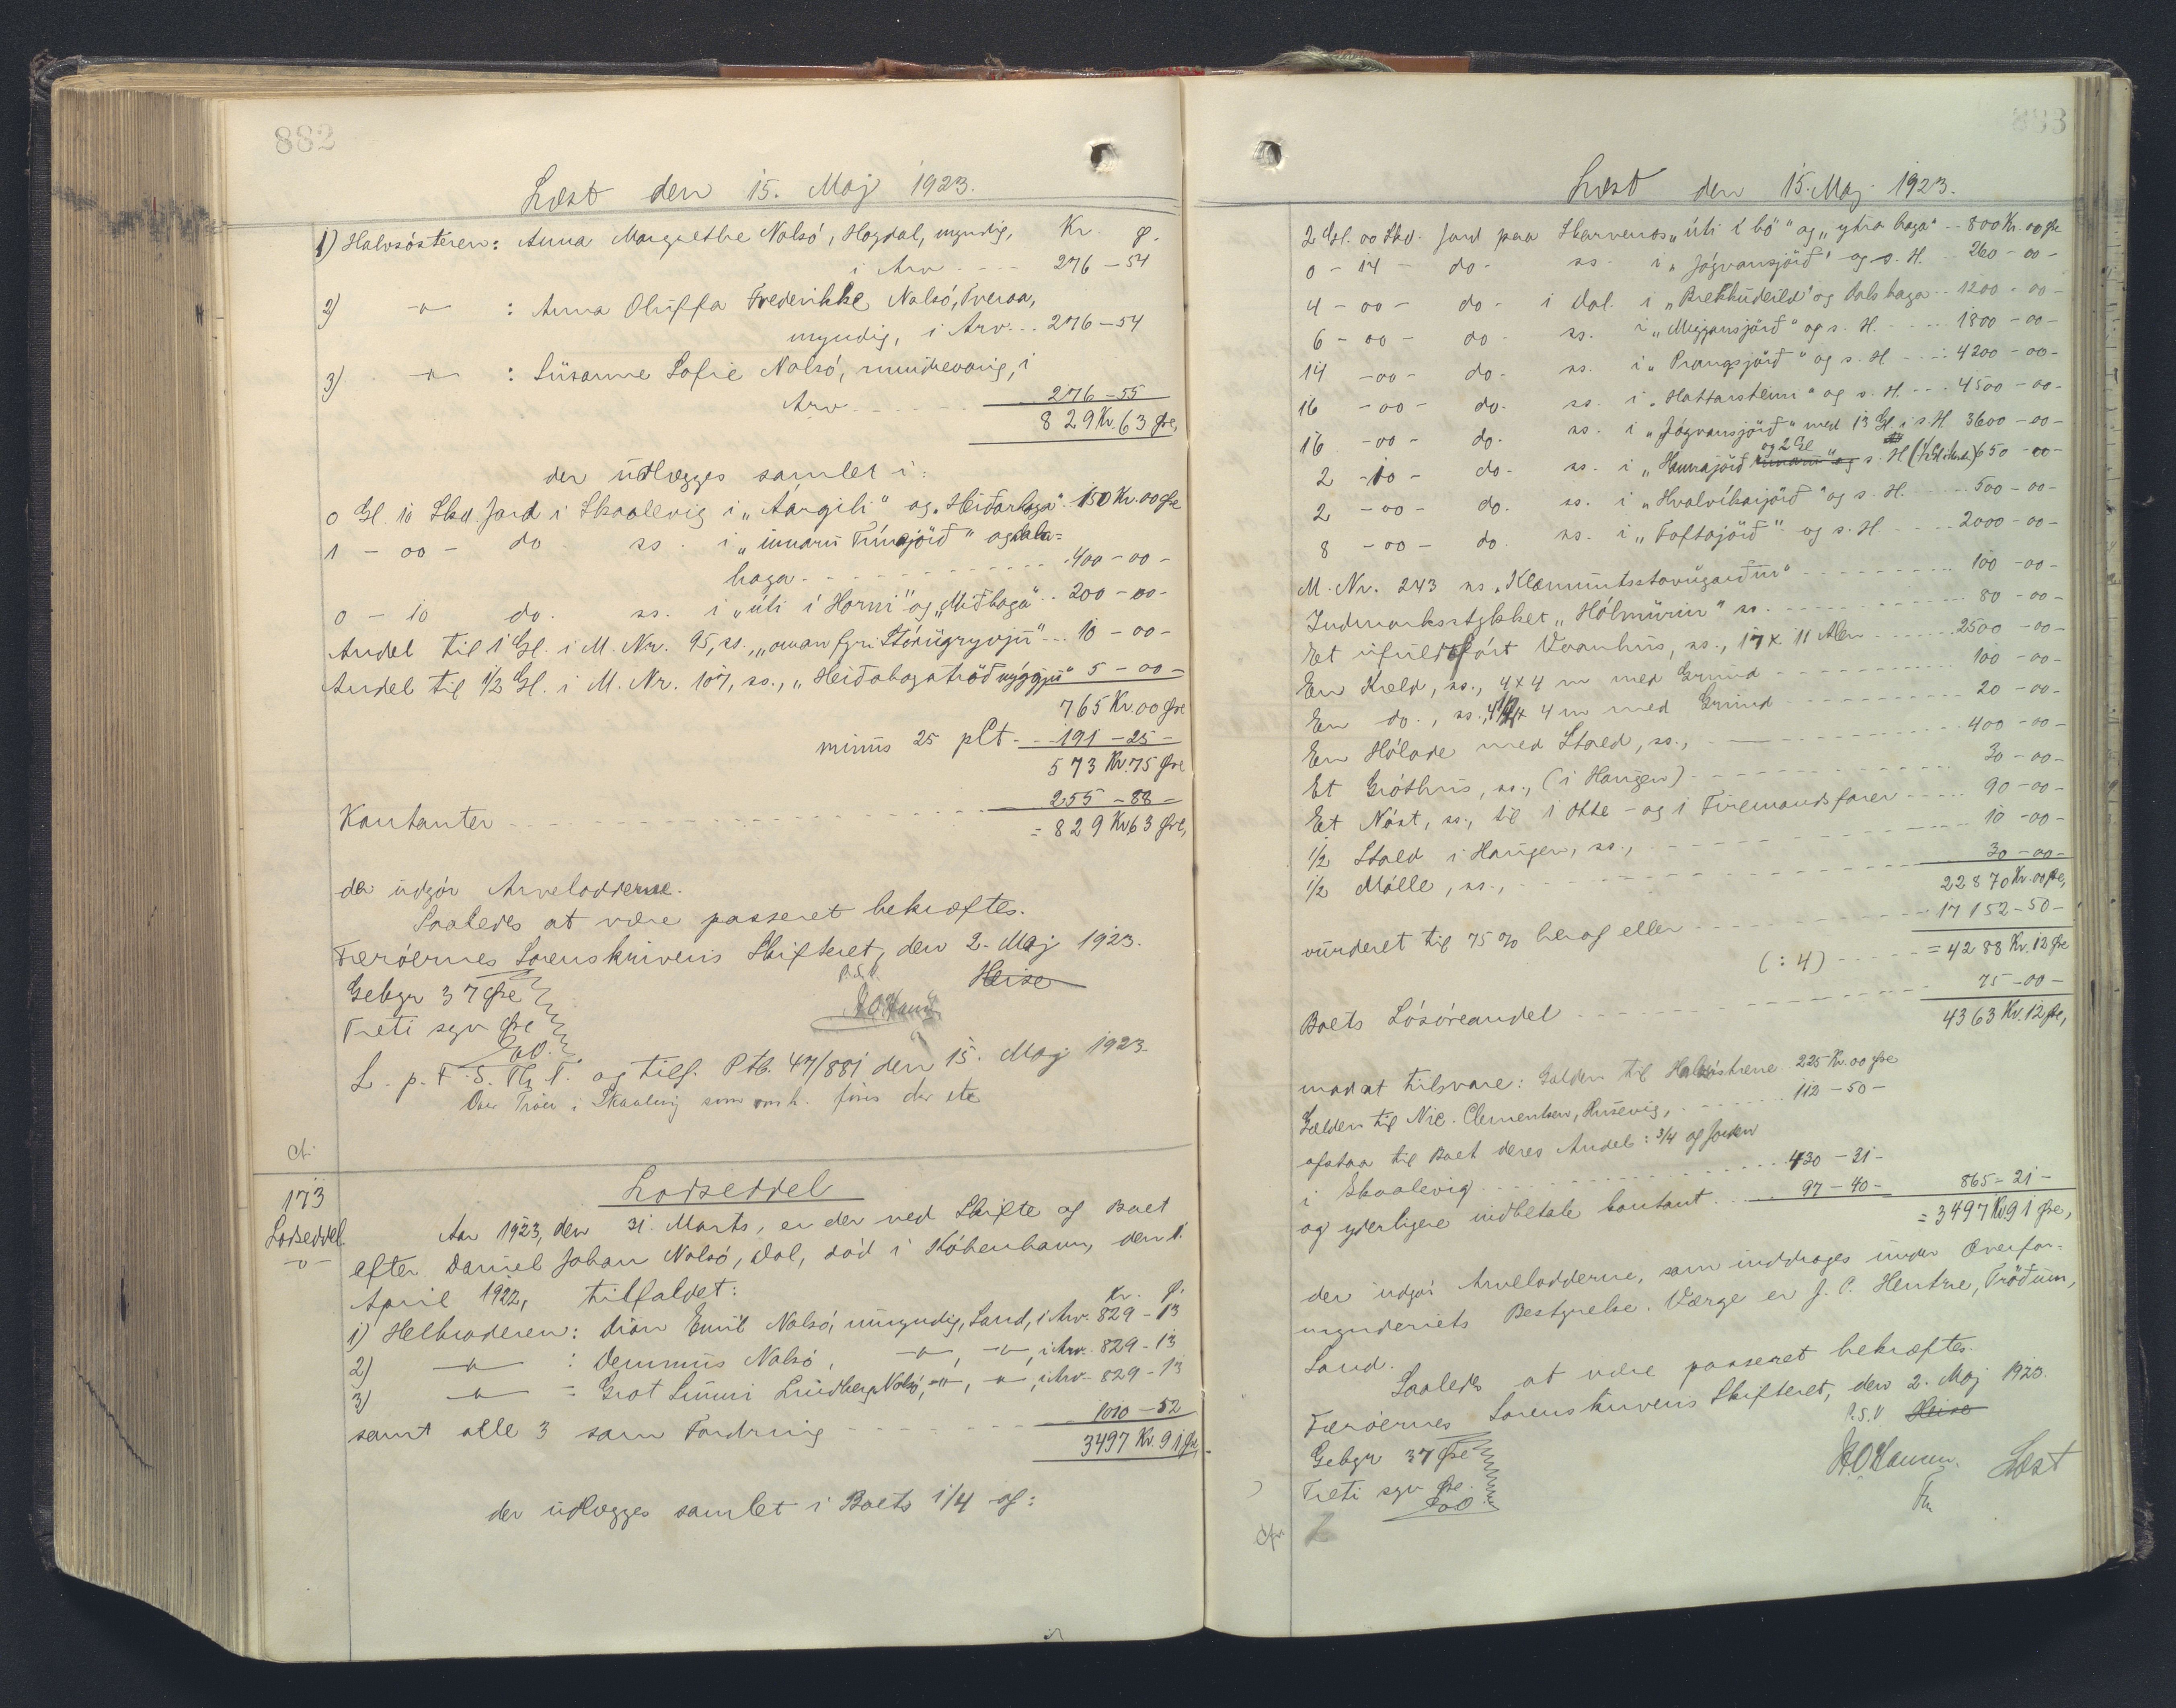 882
Læst den 15. Maj 1923.
1) Halvsösteren: Anna Margrethe Nolsö, Hogdal, myndig, Kr. Ø.
i Arv 276-54
2) -"- : Anna Oluffa Frederikke Nolsö, Tveraa,
myndig, i Arv 276-54
3) -"- : Súsanne Sofie Nolsö, mindreaarig, i
Arv 276-55
829 Kr. 63 Øre,
der udlægges samlet i:
0 Gl. 10 Skd. Jord i Skaalevig i „Áargili" og „Heiðarhaga" 150 Kr. 00 Øre
1 - 00 - do. ss. i „innaru Túnsjörð" og Dala=
haga 400-00-
0 - 10 do. ss. i „úti í Horni" og „Miðhaga" 200-00-
Andel til 1 Gl. i M. Nr. 95, ss., „oman fyri Stórugryvju" 10-00-
Andel til 1/2 Gl. i M. Nr. 107, ss., „Heiðahagatröð nýggju" 5-00-
765 Kr. 00 Øre
minus 25 pCt. 191-25-
573 Kr. 75 Øre
Kontanter 255-88-
= 829 Kr. 63 Øre,
der udgör Arvelodderne.
Saaledes at være passeret bekræftes.
Færöernes Sorenskriveris Skifteret, den 2. Maj 1923.
P.S.V. Heise
Gebyr 37 Øre
Treti syv Øre
L. p. F. S. Th. T. og tilf. Ptb. 47/881 den 15. Maj 1923.
173
Lodseddel
-"-
Lodseddel
Aar 1923, den 31. Marts, er der ved Skifte af Boet
efter Daniel Johan Nolsö, Dal, död i Köbenhavn, den 1.
April 1922, tilfaldet: Kr. Ø.
1) Helbroderen: Dion Emil Nolsö, umyndig, Sand, i Arv 829-13
2) -"- : Demmus Nolsö, -"-, -"-, i Arv 829-13
3) -"- : Grot Simmi Lindberg Nolsö, -"-, -"-, i Arv 829-13
samt alle 3 som Fordring 1010-52
3497 Kr. 91 Øre,
der udlægges samlet i Boets 1/4 af:
883
Læst den 15. Maj 1923.
2 Gl. 00 Skd. Jord paa Skarvenes „úti í bö" og „ytra haga" 800 Kr. 00 Øre
0 - 14 - do. ss. i „Jógvansjörð" og s. H. 260-00-
4 - 00 - do. i Dal. i „Brekkudeild" og Dalshaga 1200-00-
6 - 00 - do. ss. i „Miggansjörð" og s. H. 1800-00-
14 - 00 - do. ss. i „Prangsjörð" og s. H. 4200-00-
16 - 00 - do. ss. i „Hattarsteini" og s. H. 4500-00-
16 - 00 - do. ss. i „Jógvansjörð" med 13 Gl. i s. H. 3600-00-
og 2 Gl
2 - 10 - do. ss. i „Hannajörð s. H. 650-00-
2 - 00 - do. ss. i „Hvalvíksjörð" og s. H. 500-00-
8 - 00 - do. ss. i „Toftajörð" og s. H. 2000-00-
M. Nr. 243 ss. „Klæmintsstovugarðin" 100-00-
Indmarksstykket „Hólmurin" ss. 80-00-
Et ufuldfört Vaanhus, ss., 17 x 11 Alen 2500-00-
En Kæld, ss., 4 x 4 m med Grund 100-00-
En do., ss., 4 1/2 x 4 m med Grund 20-00-
En Hölade med Stald, ss., 400-00-
Et Gróthus, ss., (i Haugen) 30-00-
Et Nöst, ss., til 1 Otte- og 1 Firemandsfarer 90-00-
1/2 Stald i Haugen, ss., 10-00-
1/2 Mölle, ss., 30-00-
22870 Kr. 00 Øre,
vurderet til 75% heraf eller 17152-50-
(:4) = 4288 Kr. 12 Øre
Boets Lösöreandel 75-00-
4363 Kr. 12 Øre,
mod at tilsvare: Gælden til Halvsöstrene 225 Kr. 00 Øre
Gælden til Nic. Clementsen, Husevig, 112-50-
afstaa til Boet deres Andel: 3/4 af Jorden
i Skaalevig 430-31-
og yderligere indbetale kontant 97-40- 865-21-
= 3497 Kr. 91 Øre,
der udgör Arvelodderne, som inddrages under Overfor-
mynderiets Bestyrelse. Værge er J. C. Hentze, Tröðum,
Sand.
Saaledes at være passeret bekræftes.
Færöernes Sorenskriveris Skifteret, den 2. Maj 1923.
P.S.V. Heise
Gebyr 37 Øre
Treti syv Øre.
Læst